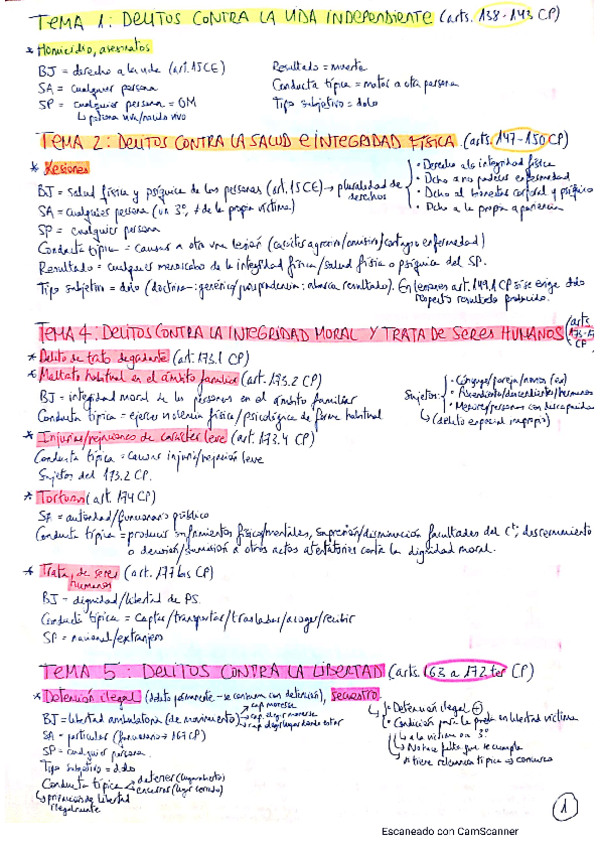 TEMA 1: DELITOS CONTRA LA VIDA INDEPENDIENTE (arts. 138-143 CP)
* Homicidio, asesinatos
BJ = derecho a la vida (art. 15 CE)
SA = cualquier persona
SP = cualquier persona = OM
↳ persona viva/nacido vivo
Resultado = muerte
Conducta típica = matar a otra persona
Tipo subjetivo = dolo
TEMA 2: DELITOS CONTRA LA SALUD e INTEGRIDAD FÍSICA (arts. 147-150 CP)
* Lesiones
BJ = salud física y psíquica de las personas (art. 15 CE) → pluralidad de derechos
• Derecho a la integridad física
• Dcho a no padecer enfermedad
• Dcho al bienestar corporal y psíquico
• Dcho a la propia apariencia
SA = cualquier persona (un 3º, ≠ de la propia víctima)
SP = cualquier persona
Conducta típica = causar a otro una lesión (carácter agresivo/omisivo/contagio enfermedad)
Resultado = cualquier menoscabo de la integridad física/salud física o psíquica del SP.
Tipo subjetivo = dolo (doctrina = genérico/jurisprudencia: abarca resultado). En lesiones art. 149.1 CP sí se exige dolo respecto resultado producido.
TEMA 4: DELITOS CONTRA LA INTEGRIDAD MORAL Y TRATA DE SERES HUMANOS (arts. CP
* Delito de trato degradante (art. 173.1 CP)
* Maltrato habitual en el ámbito familiar (art. 173.2 CP)
BJ = integridad moral de las personas en el ámbito familiar
Conducta típica = ejercer violencia física/psicológica de forma habitual
Sujetos:
• Cónyuge/pareja/novios (ex)
• Ascendientes/descendientes/hermanos
• Menores/personas con discapacidad
↳ (delito especial impropio)
* Injurias/vejaciones de carácter leve (art. 173.4 CP)
Conducta típica = causar injuria/vejación leve
Sujetos del 173.2 CP.
* Torturas (art. 174 CP)
SA = autoridad/funcionario público
Conducta típica = producir sufrimientos físicos/mentales, supresión/disminución facultades del cto, discernimiento
o decisión/sumisión a otros actos atentatorios contra la dignidad moral.
* Trata de seres humanos (art. 177 bis CP)
BJ = dignidad/libertad de PS.
Conducta típica = captar/transportar/trasladar/acoger/recibir
SP = nacional/extranjero
TEMA 5: DELITOS CONTRA LA LIBERTAD (arts. 163 a 172 ter CP)
* Detención ilegal (delito permanente - se consuma con detención), secuestro
BJ = libertad ambulatoria (de movimiento) → cap. moverse
→ cap. elegir moverse
→ cap. elegir lugar donde estar
SA = particular (funcionario → 167 CP)
SP = cualquier persona.
Tipo subjetivo = dolo
Conducta típica → detener (lugar abierto)
→ encerrar (lugar cerrado)
↳ privación de libertad ilegalmente
• Detención ilegal
• Condición para la puesta en libertad víctima
↳ a la víctima o a un 3º
↳ No hace falta que se cumpla
1
Escaneado con CamScanner